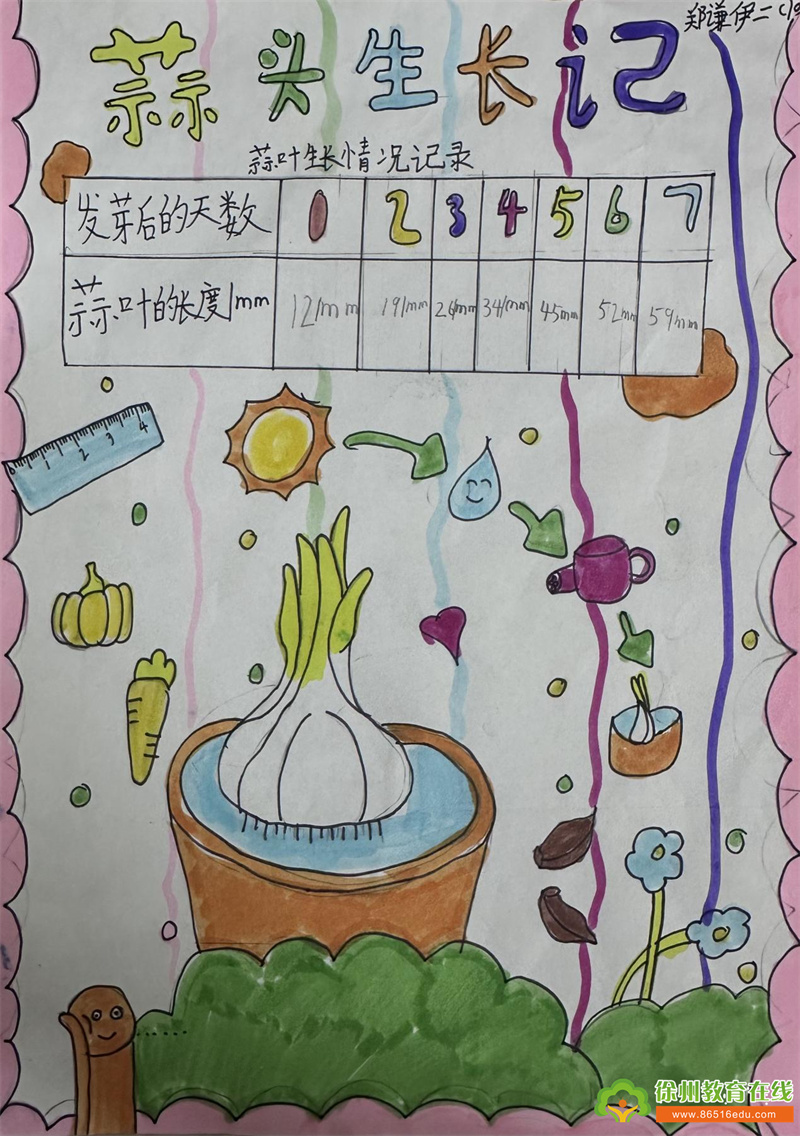 郑谦伊二(19
蒜头生长记
蒜叶生长情况记录
发芽后的天数 1 2 3 4 5 6 7
蒜叶的长度/mm 12mm 19mm 26mm 34mm 45mm 52mm 59mm
0 1 2 3 4
徐州教育在线
www.86516edu.com